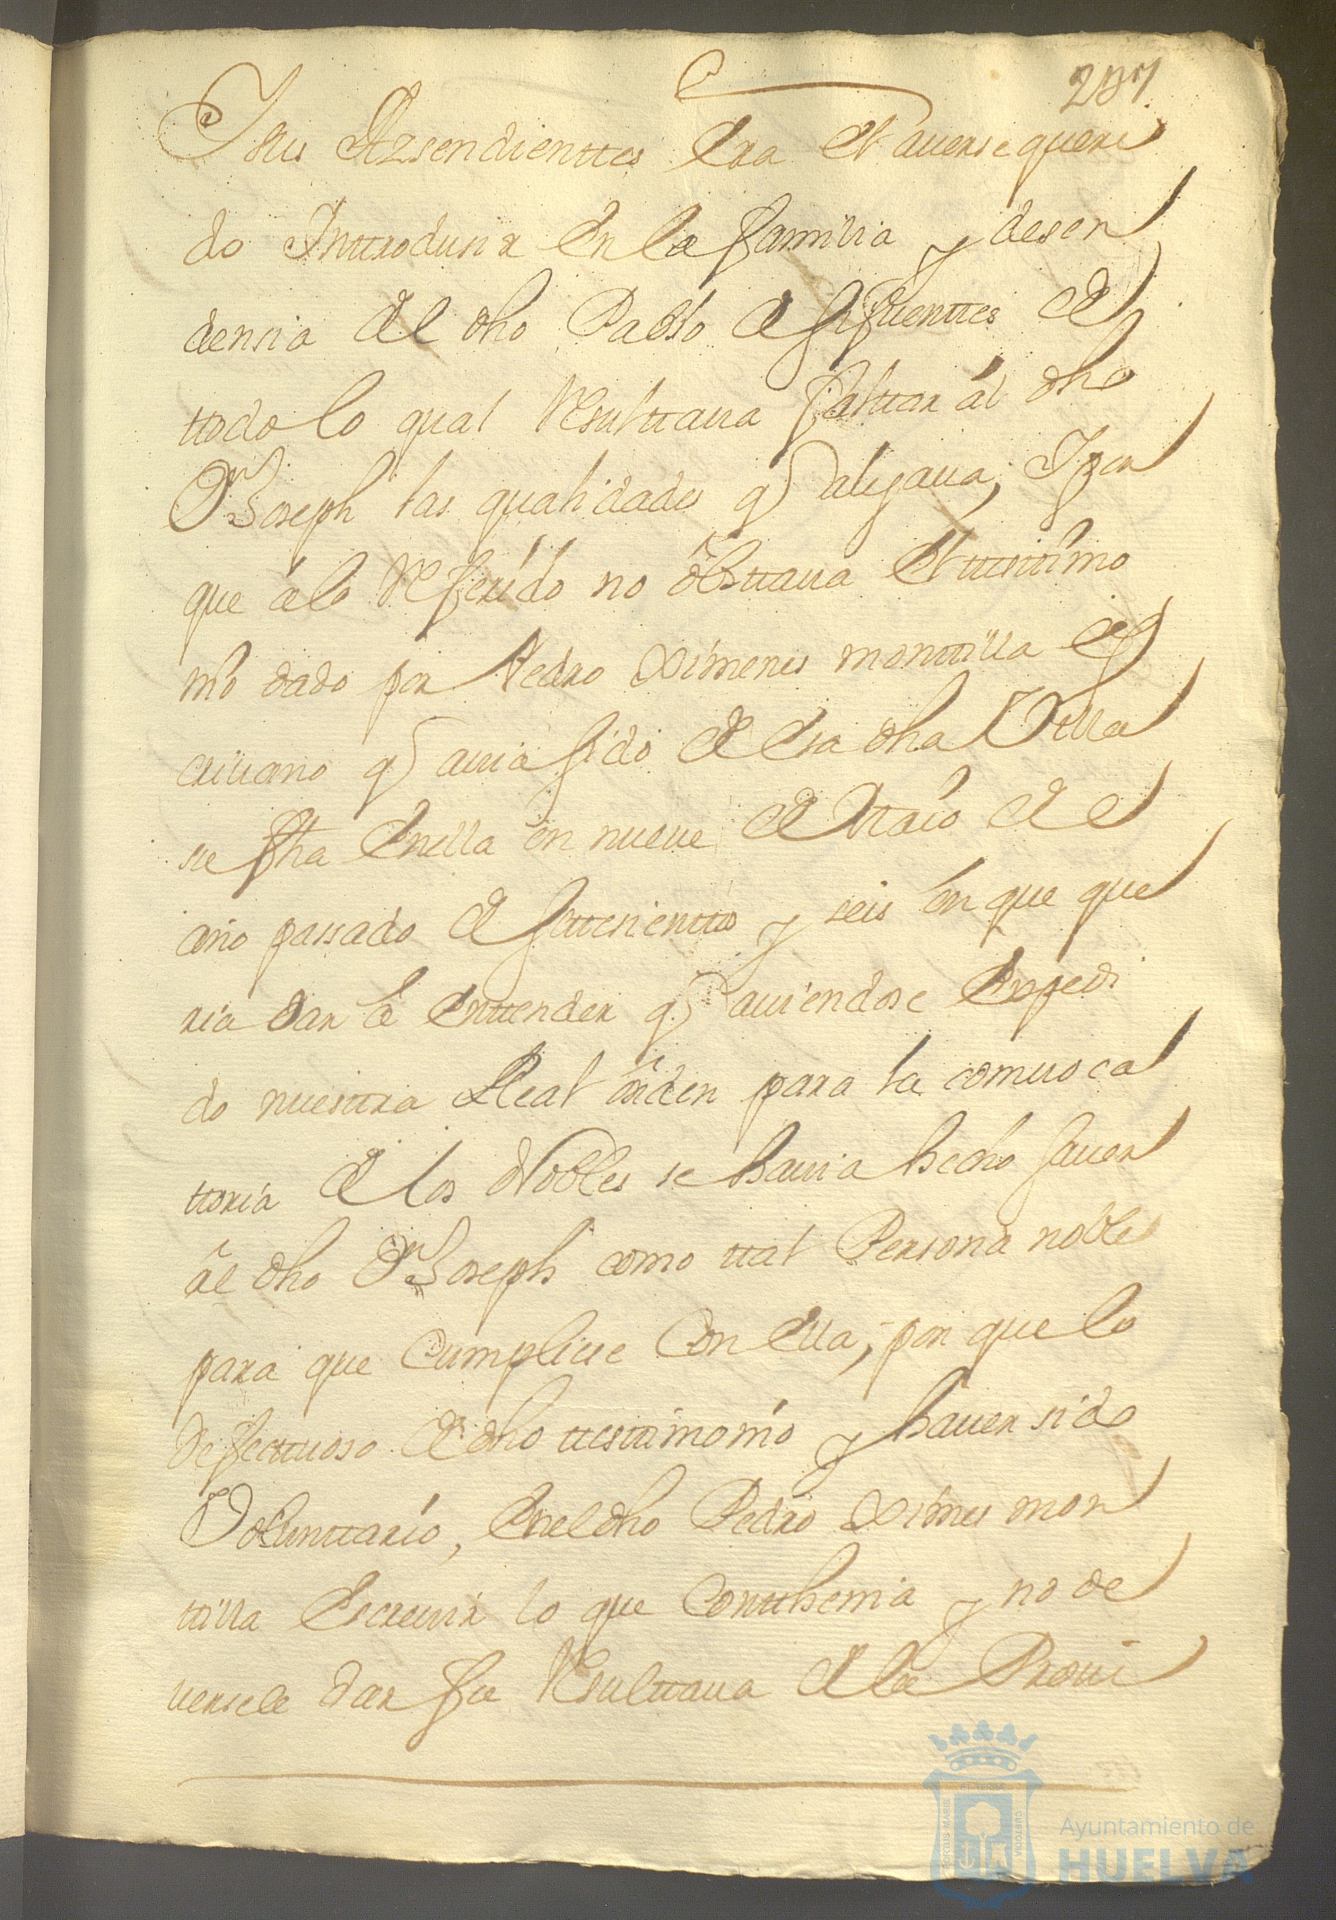 237
Y sus Azsendienttes Era El auerse queri
do Inttroducir En la familia y desen
dencia del dho Pablo de Sifuenttes de
ttodo lo qual Resulttaua falttar ál dho
Dn Joseph las qualidades q alegaua; Y por
que á lo Referido no óbsttaua El ttesttimo
nio dado por Pedro Ximenes monttilla es
criuano q auia sido de Esa dha Villa
su fha En ella en nueue de Maío de el
año passado de settesientos y seis En que que
ria dar á Enttender q auiendose Expedi
do nuesttra Real órden para la comuoca
ttoria de los Nobles se hauia hecho sauer
ál dho Dn Joseph como ttal Persona noble
para que Cumpliese Con Ella, por que lo
defecttuoso de dho ttesttimonio y hauer sido
Volunttario, En el dho Pedro Ximes mon
ttilla Escreuir lo que Contthenia y no de
uersele dar fee Resulttaua de la Proui
Ayuntamiento de
HUELVA